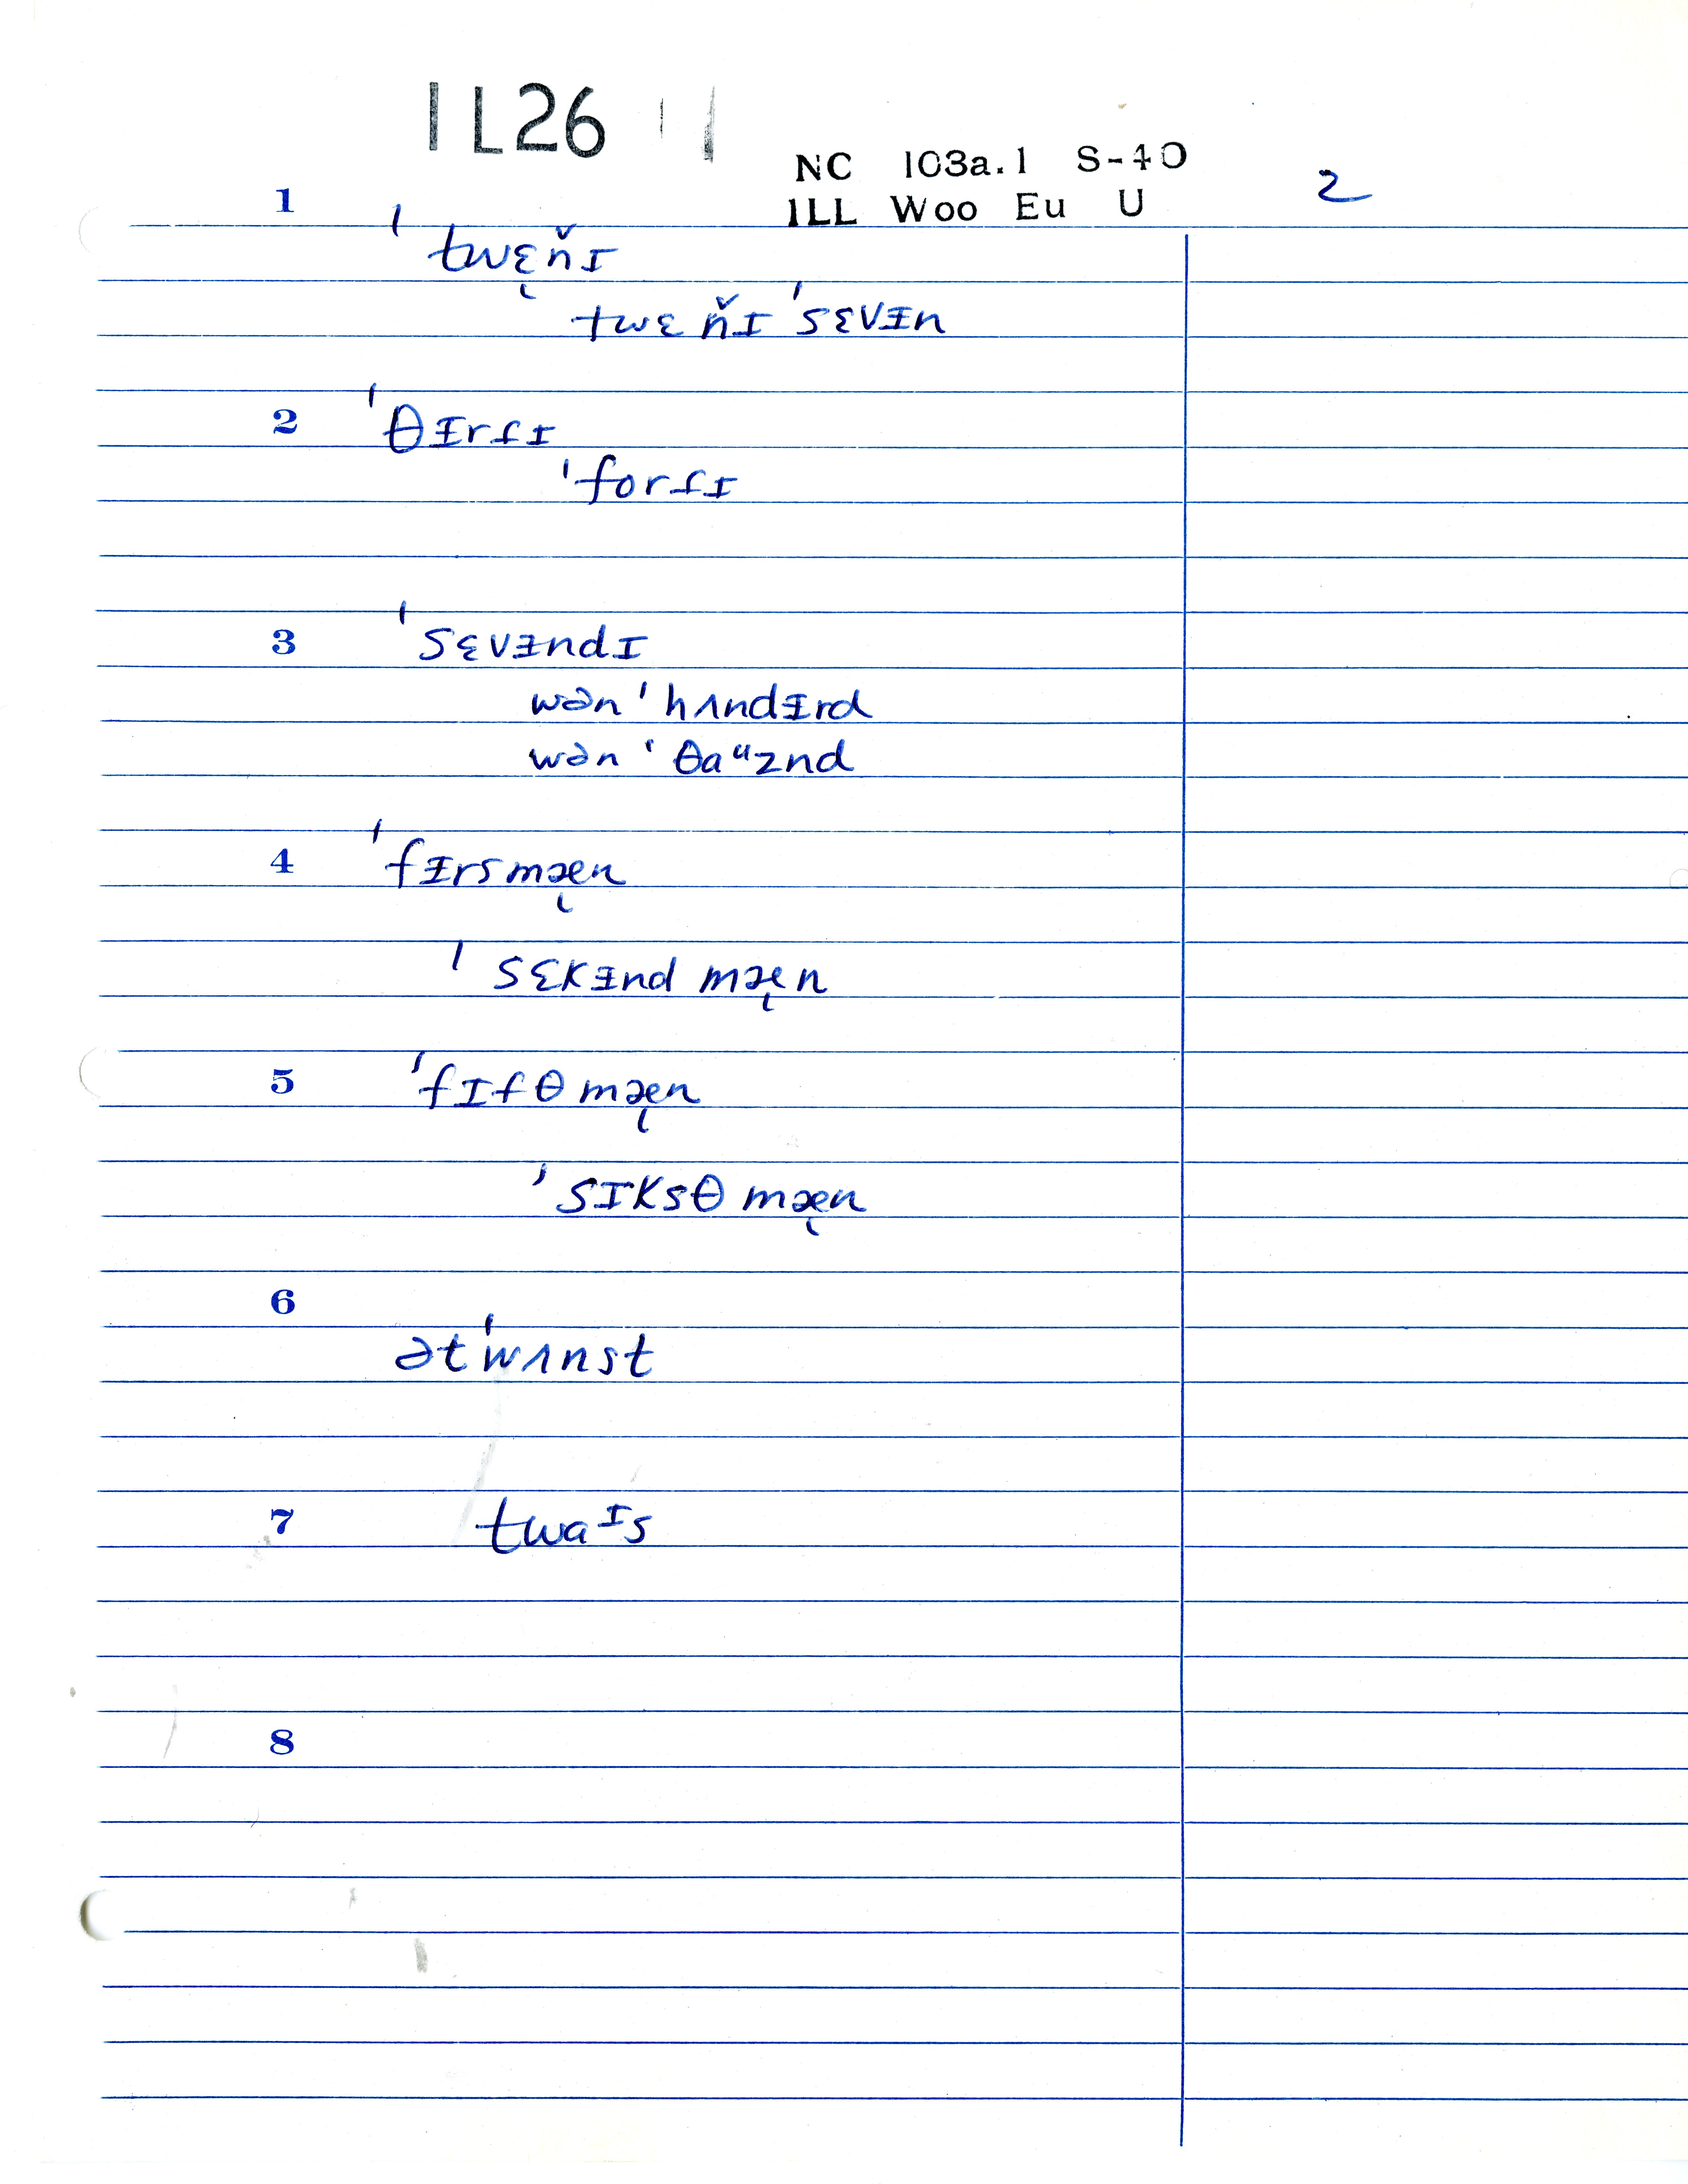 IL26
NC 103a.1 S-40
ILL Woo Eu U
2
1 ˈtwɛ̨n̆ɪ
twɛn̆ɪˈsɛvᵻn
2 ˈθᵻrt̬ɪ
ˈfort̬ɪ
3 ˈsɛvᵻndɪ
wənˈhʌndᵻrd
wənˈθaᵘznd
4 ˈfᵻrsmæ̨n
ˈsɛkᵻnd mæ̨n
5 ˈfɪfθ mæ̨n
ˈsɪksθ mæ̨n
6
ətˈwʌnst
7 twaᶦs
8